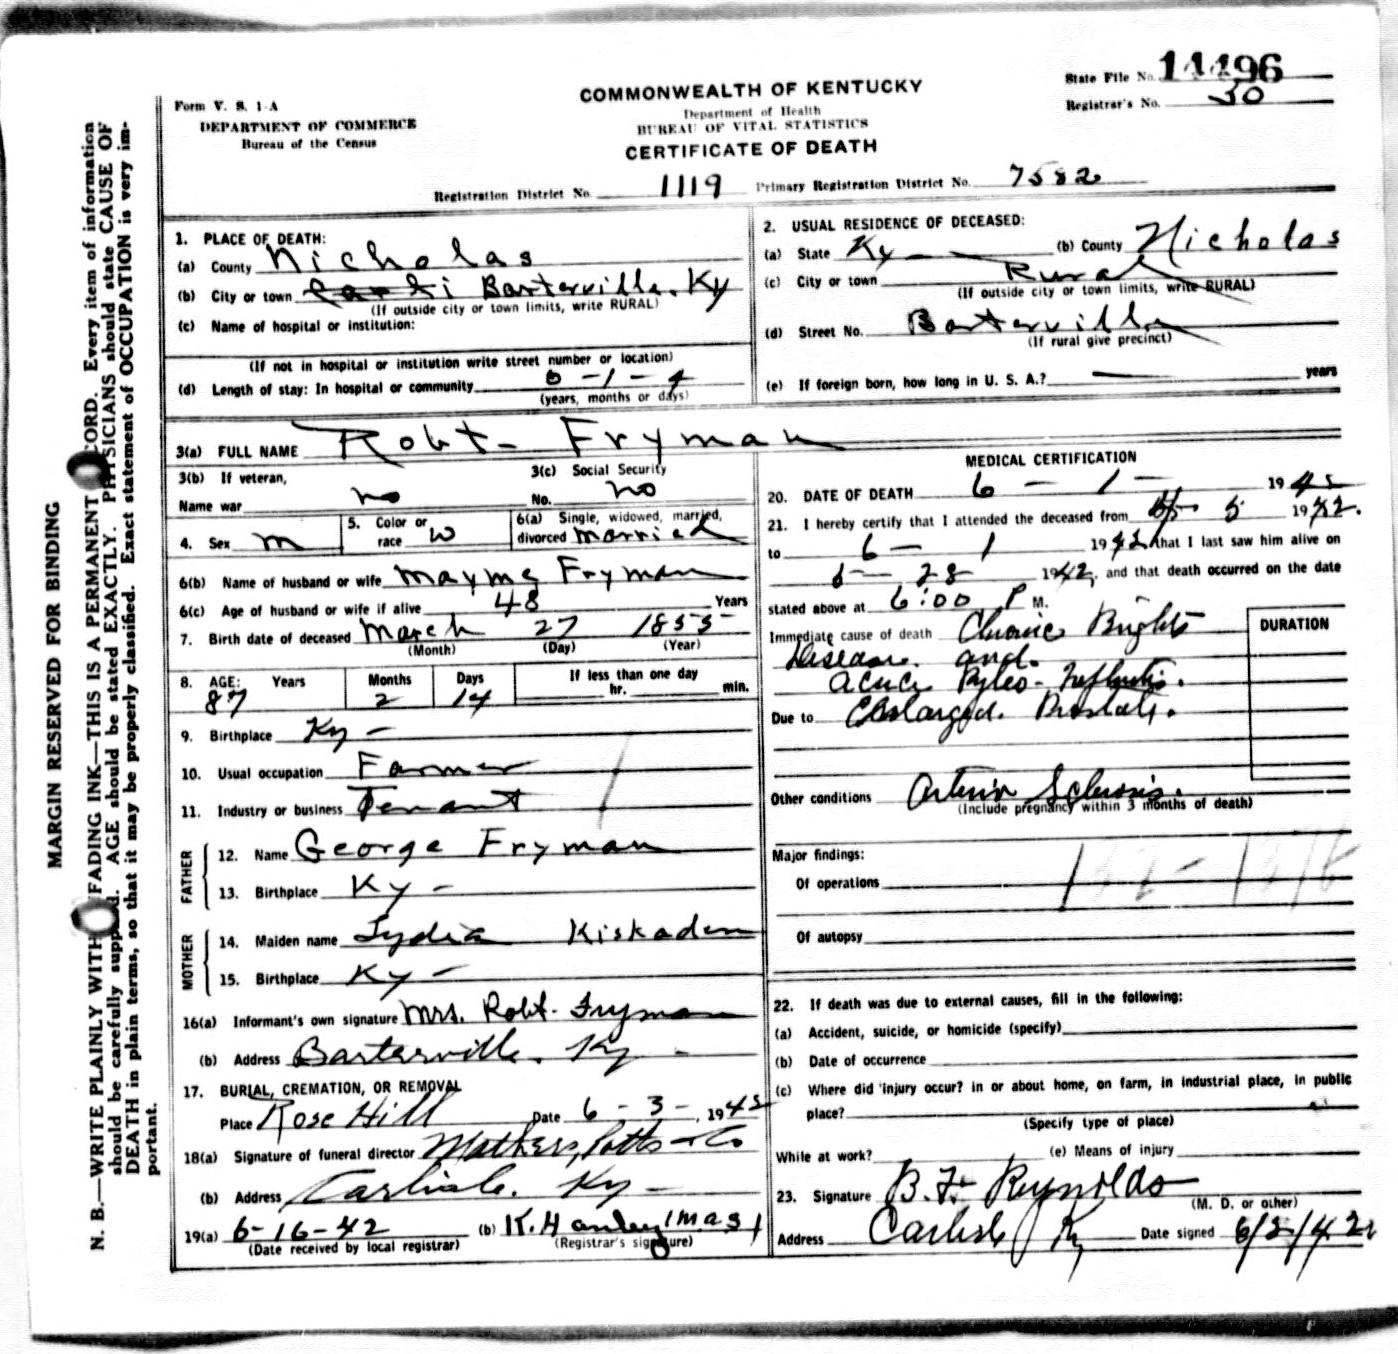 State File No. 14496
Form V. S. 1-A
COMMONWEALTH OF KENTUCKY
Registrar's No. 30
DEPARTMENT OF COMMERCE
Department of Health
Bureau of the Census
BUREAU OF VITAL STATISTICS
CERTIFICATE OF DEATH
Registration District No. 1119 Primary Registration District No. 7582
MARGIN RESERVED FOR BINDING
N. B.—WRITE PLAINLY WITH FADING INK—THIS IS A PERMANENT CORD. Every item of information
should be carefully supp d. AGE should be stated EXACTLY. PHYSICIANS should state CAUSE OF
DEATH in plain terms, so that it may be properly classified. Exact statement of OCCUPATION is very im-
portant.
1. PLACE OF DEATH:
(a) County Nicholas
(b) City or town Barterville, Ky
(If outside city or town limits, write RURAL)
(c) Name of hospital or institution:
(If not in hospital or institution write street number or location)
(d) Length of stay: In hospital or community
(years, months or days)
2. USUAL RESIDENCE OF DECEASED:
(a) State Ky (b) County Nicholas
(c) City or town Rural
(If outside city or town limits, write RURAL)
(d) Street No. Barterville
(If rural give precinct)
(e) If foreign born, how long in U. S. A.? years
3(a) FULL NAME Robt- Fryman
3(b) If veteran,
3(c) Social Security
Name war no No. no
4. Sex m
5. Color or
race w
6(a) Single, widowed, married,
divorced married
6(b) Name of husband or wife Mayme Fryman
6(c) Age of husband or wife if alive 48 Years
7. Birth date of deceased March 27 1855
(Month) (Day) (Year)
8. AGE: Years Months Days If less than one day
87 2 14 hr. min.
9. Birthplace Ky -
10. Usual occupation Farmer
11. Industry or business Tenant
FATHER
12. Name George Fryman
13. Birthplace Ky -
MOTHER
14. Maiden name Lydia Kiskaden
15. Birthplace Ky -
16(a) Informant's own signature Mrs. Robt. Fryman
(b) Address Barterville, Ky -
17. BURIAL, CREMATION, OR REMOVAL
Place Rose Hill Date 6 - 3 - , 1942
18(a) Signature of funeral director Mathers, Potts + Co
(b) Address Carlisle, Ky -
19(a) 6-16-42 (b)
(Date received by local registrar) (Registrar's signature)
MEDICAL CERTIFICATION
20. DATE OF DEATH 6 - 1 - 1942
21. I hereby certify that I attended the deceased from 5 1942.
to 6 - 1 1942 that I last saw him alive on
28 1942, and that death occurred on the date
stated above at 6:00 P M.
Immediate cause of death Chronic Brights
Disease and
DURATION
Due to Enlarged Prostate.
Other conditions Arterio Sclerosis.
(Include pregnancy within 3 months of death)
Major findings:
Of operations
Of autopsy
22. If death was due to external causes, fill in the following:
(a) Accident, suicide, or homicide (specify)
(b) Date of occurrence
(c) Where did injury occur? in or about home, on farm, in industrial place, in public
place?
(Specify type of place)
While at work? (e) Means of injury
23. Signature B. F. Reynolds
(M. D. or other)
Address Carlisle Ky Date signed 6/2/42